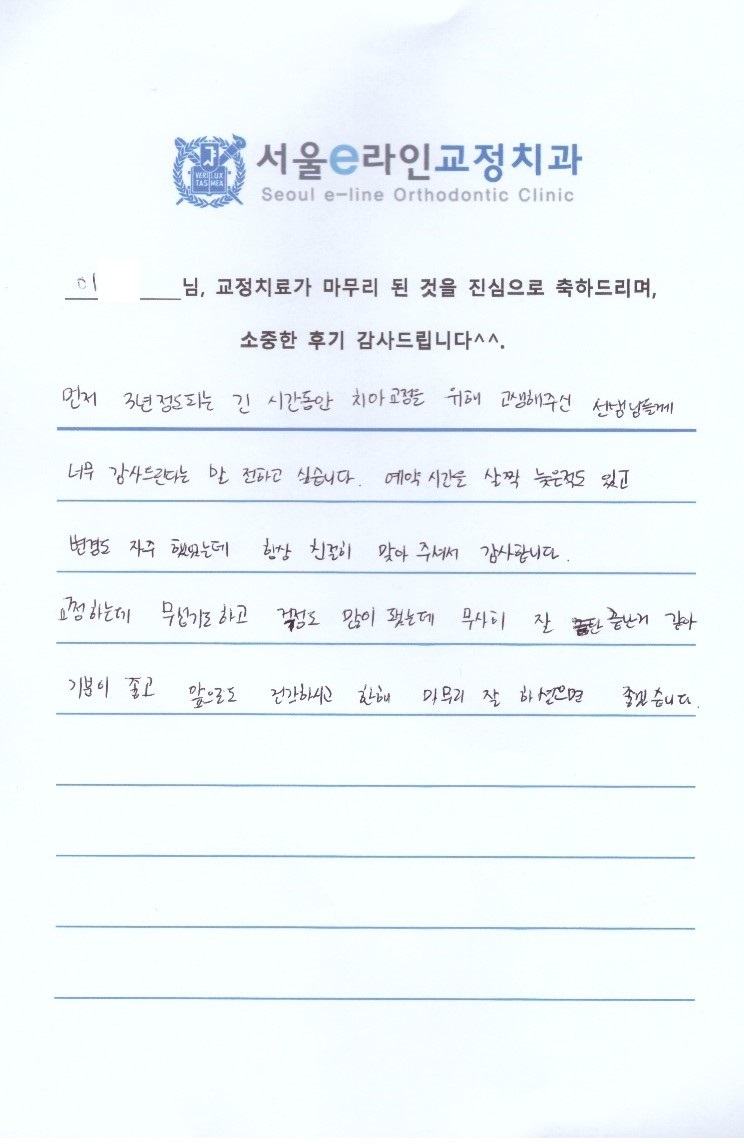 서울e라인교정치과
Seoul e-line Orthodontic Clinic
VERI LUX
TAS MEA
이 님, 교정치료가 마무리 된 것을 진심으로 축하드리며,
소중한 후기 감사드립니다^^.
먼저 3년정도되는 긴 시간동안 치아교정을 위해 고생해주신 선생님들께
너무 감사드린다는 말 전하고 싶습니다. 예약시간을 살짝 늦은적도 있고
변경도 자주 했었는데 항상 친절히 맞아 주셔서 감사합니다.
교정하는데 무섭기도하고 걱정도 많이 됐는데 무사히 잘 끝난거 같아
기분이 좋고 앞으로도 건강하시고 한해 마무리 잘 하셨으면 좋겠습니다.